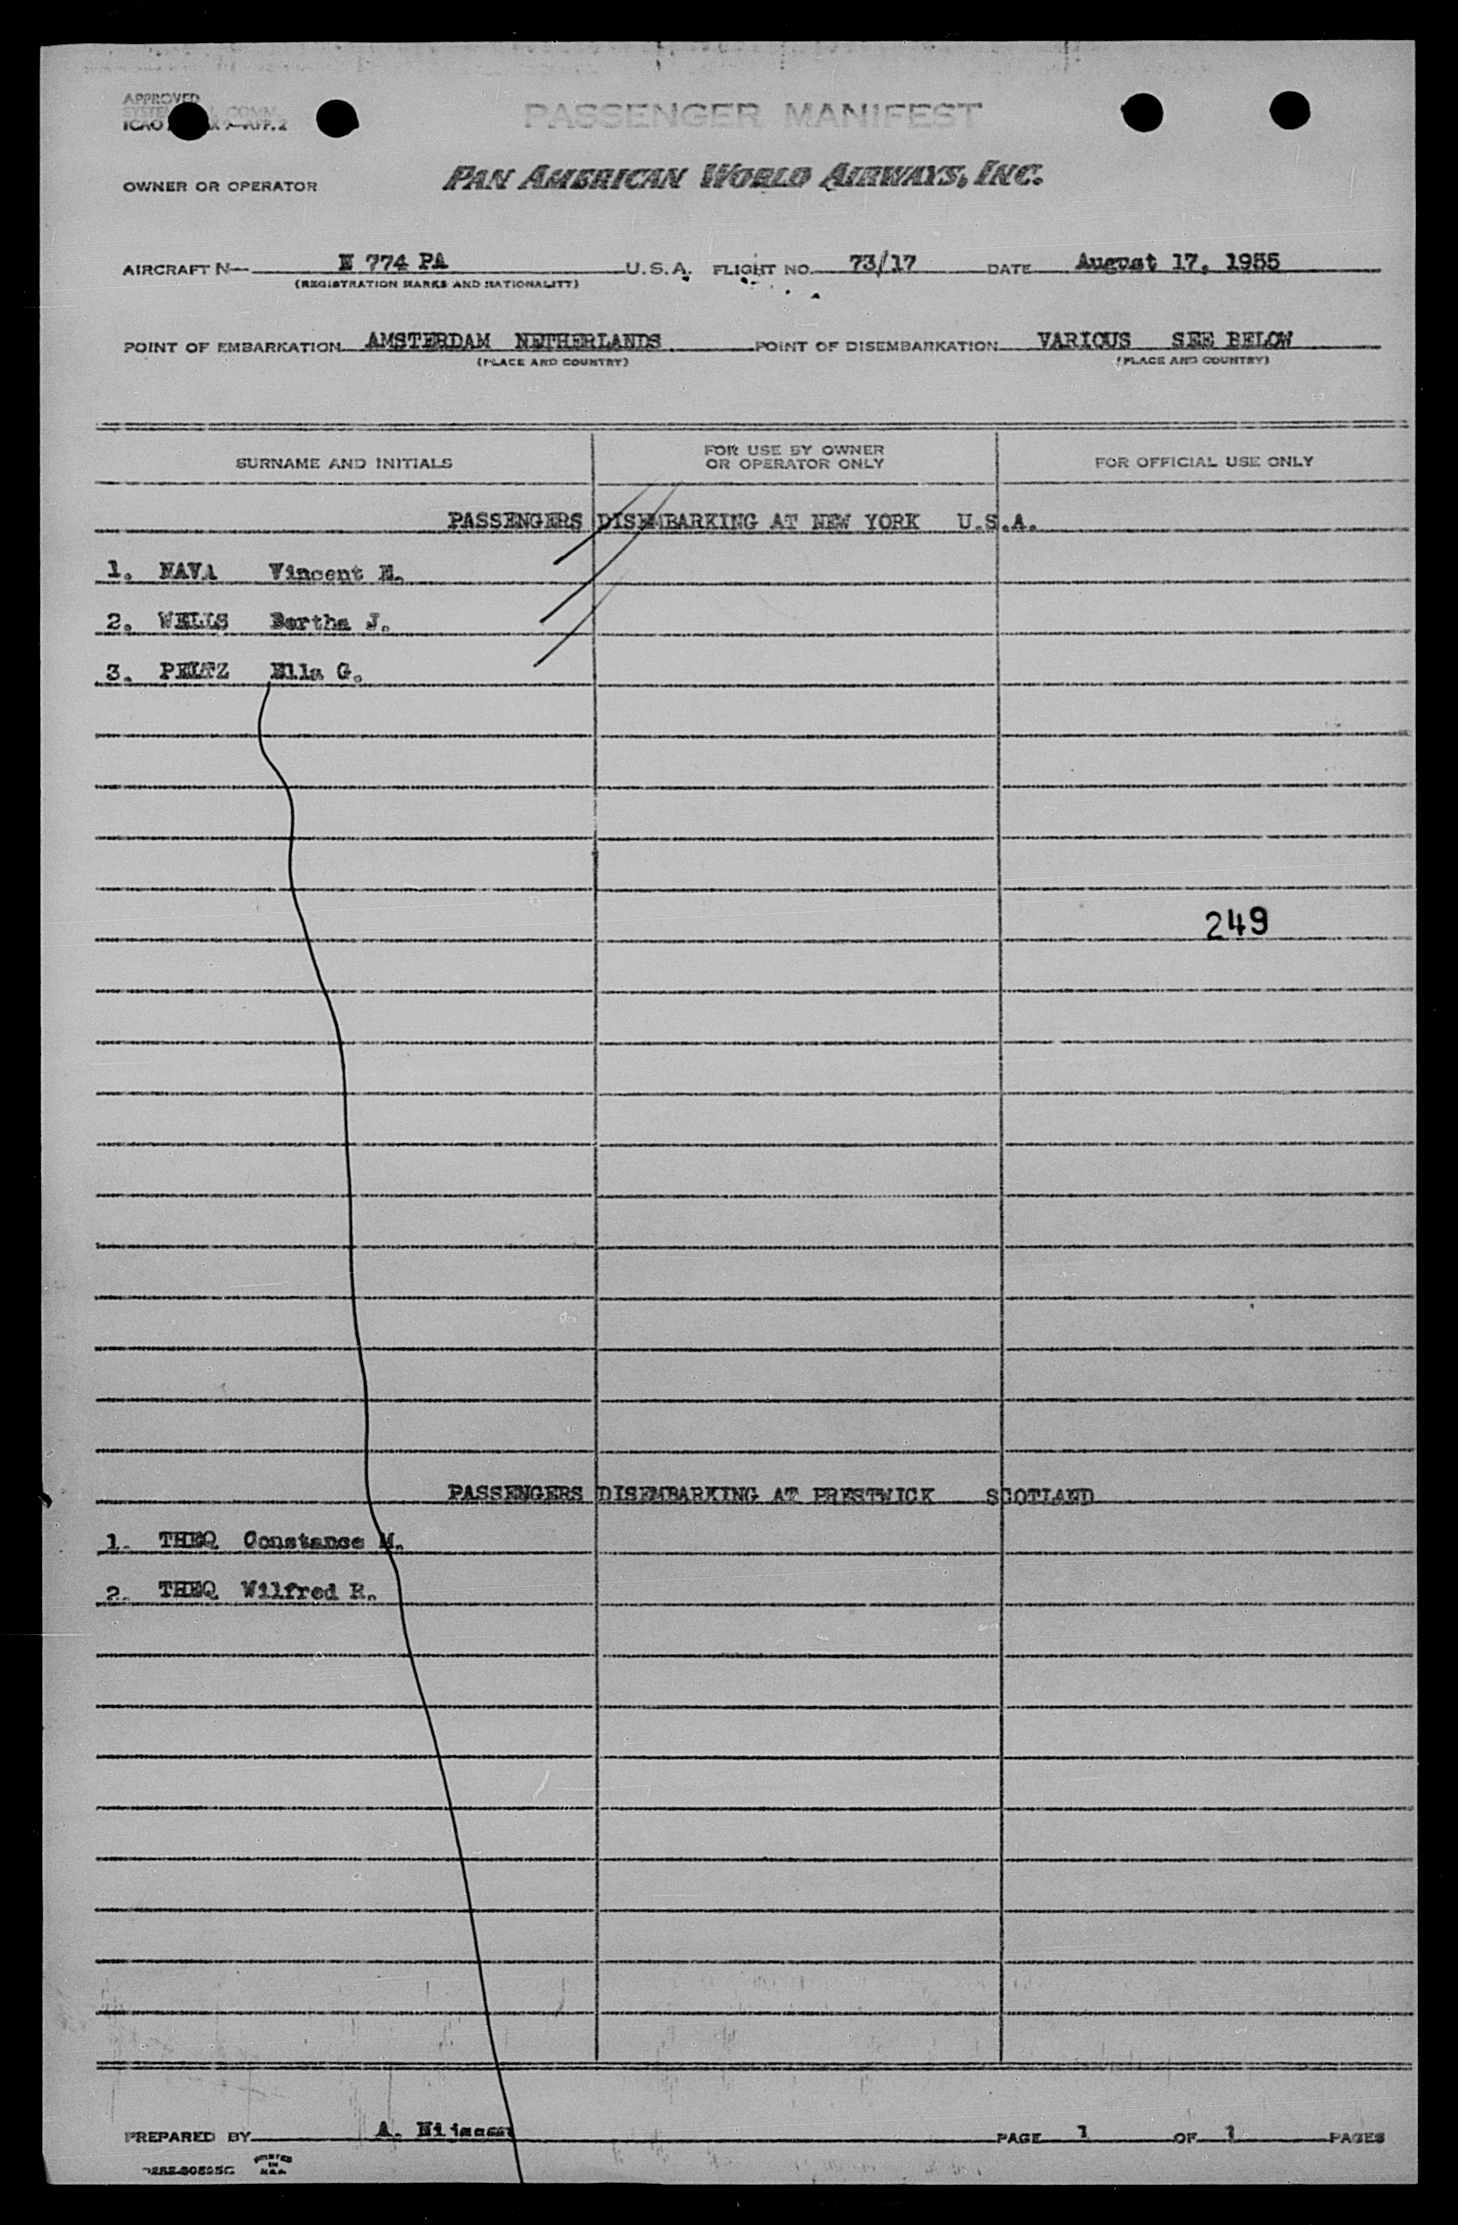 APPROVED
PASSENGER MANIFEST
OWNER OR OPERATOR PAN AMERICAN WORLD AIRWAYS, INC.
AIRCRAFT N— N 774 PA U.S.A. FLIGHT NO. 73/17 DATE August 17, 1955
(REGISTRATION MARKS AND NATIONALITY)
POINT OF EMBARKATION AMSTERDAM NETHERLANDS POINT OF DISEMBARKATION VARIOUS SEE BELOW
(PLACE AND COUNTRY) (PLACE AND COUNTRY)
SURNAME AND INITIALS FOR USE BY OWNER OR OPERATOR ONLY FOR OFFICIAL USE ONLY
PASSENGERS DISEMBARKING AT NEW YORK U.S.A.
1. NAVA Vincent
2. WELLS Bertha J.
3. PELTZ Ella G.
249
PASSENGERS DISEMBARKING AT PRESTWICK SCOTLAND
1. THEQ Constance M.
2. THEQ Wilfred R.
PREPARED BY A. PAGE 1 OF 1 PAGES
PRINTED IN U.S.A.